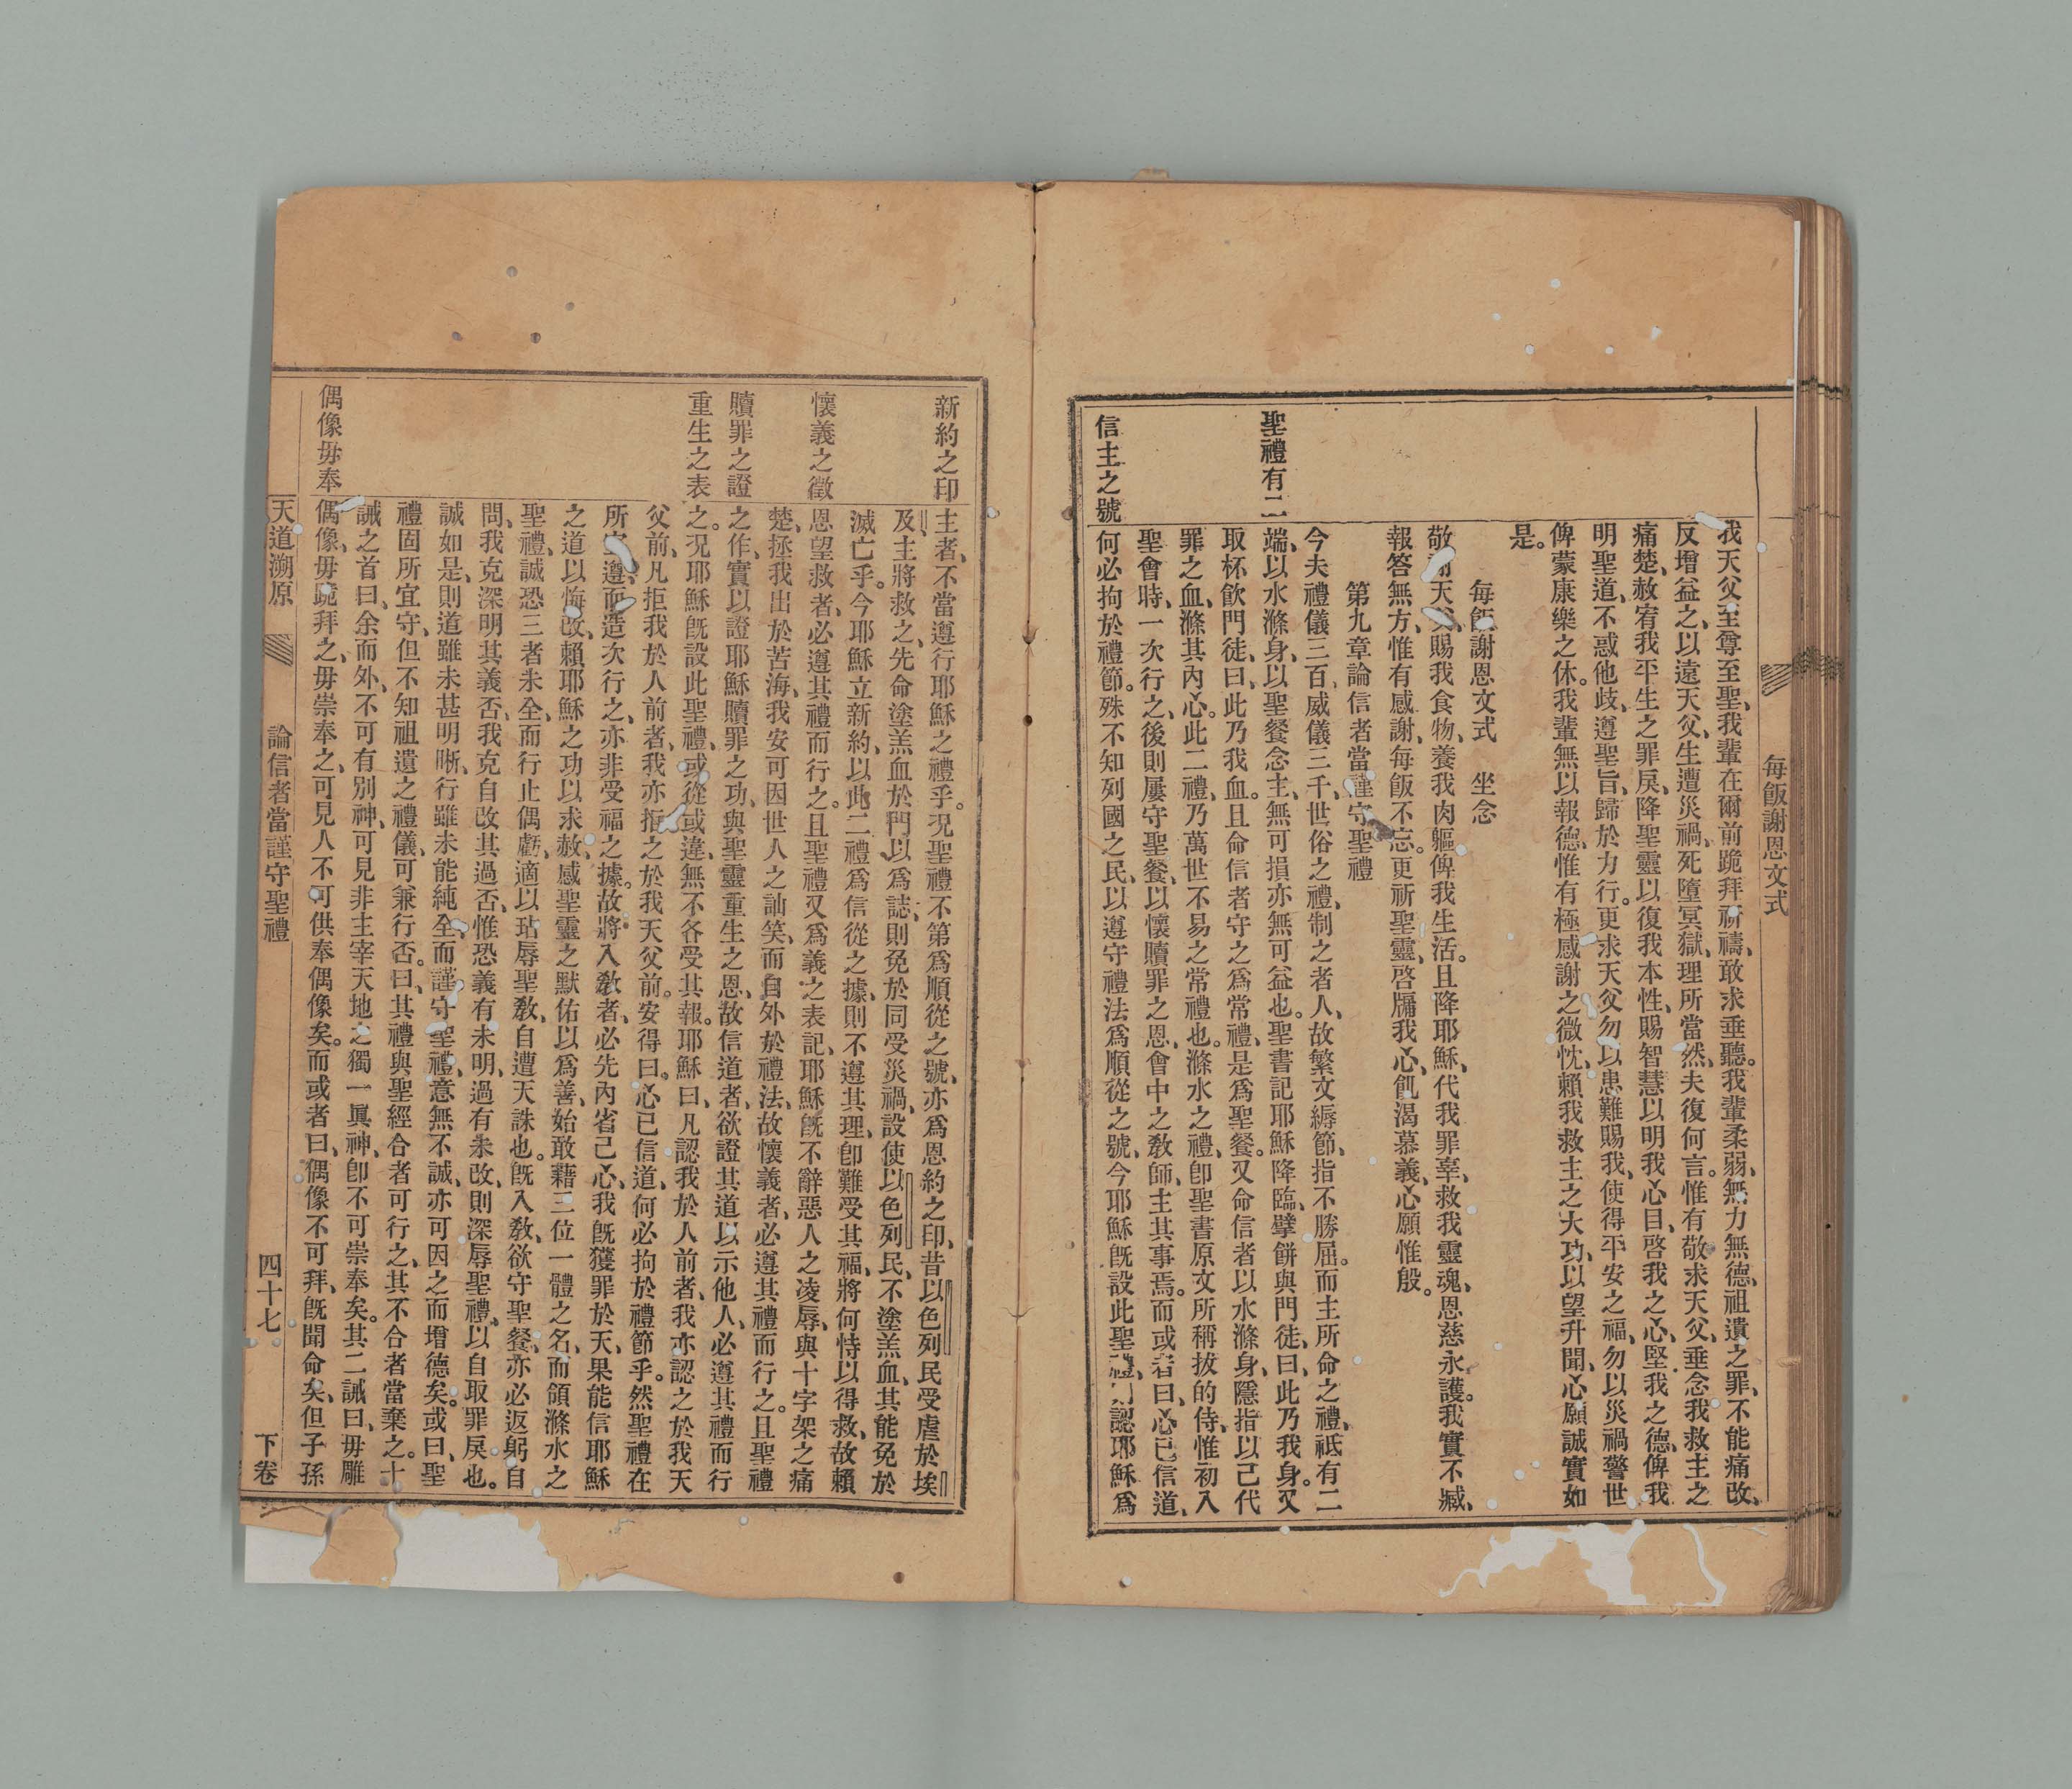 每飯謝恩文式
我天父至尊至聖、我輩在爾前跪拜祈禱、敢求垂聽。我輩柔弱、無力無德、祖遺之罪、不能痛改、
反增益之、以遠天父、生遭災禍、死墮冥獄、理所當然、夫復何言。惟有敬求天父、垂念我救主之
痛楚、赦宥我平生之罪戾、降聖靈以復我本性、賜智慧以明我心目、啓我之心、堅我之德、俾我
明聖道、不惑他歧、遵聖旨、歸於力行。更求天父勿以患難賜我、使得平安之福、勿以災禍警世、
俾蒙康樂之休。我輩無以報德、惟有極感謝之微忱、賴我救主之大功、以望升聞、心願誠實如
是。
每飯謝恩文式 坐念
敬謝天父、賜我食物、養我肉軀、俾我生活。且降耶穌、代我罪辜、救我靈魂、恩慈永護。我實不臧、
報答無方、惟有感謝、每飯不忘。更祈聖靈、啓牖我心、飢渴慕義、心願惟殷。
第九章論信者當謹守聖禮
聖禮有二
今夫禮儀三百、威儀三千、世俗之禮、制之者人、故繁文縟節、指不勝屈。而主所命之禮、祗有二
端、以水滌身、以聖餐念主、無可損亦無可益也。聖書記耶穌降臨、擘餅與門徒、曰、此乃我身。又
取杯飲門徒、曰、此乃我血。且命信者守之爲常禮、是爲聖餐。又命信者以水滌身、隱指以己代
罪之血、滌其內心。此二禮、乃萬世不易之常禮也。滌水之禮、卽聖書原文所稱拔的侍、惟初入
聖會時、一次行之、後則屢守聖餐、以懷贖罪之恩、會中之敎師、主其事焉。而或者曰、心已信道、
信主之號
何必拘於禮節。殊不知列國之民、以遵守禮法爲順從之號、今耶穌旣設此聖禮、認耶穌爲
新約之印
主者、不當遵行耶穌之禮乎。况聖禮不第爲順從之號、亦爲恩約之印、昔以色列民受虐於埃
及、主將救之、先命塗羔血於門以爲誌、則免於同受災禍、設使以色列民、不塗羔血、其能免於
滅亡乎。今耶穌立新約、以此二禮爲信從之據、則不遵其理、卽難受其福、將何恃以得救、故賴
懷義之徵
恩望救者、必遵其禮而行之。且聖禮又爲義之表記、耶穌旣不辭惡人之凌辱、與十字架之痛
楚、拯我出於苦海、我安可因世人之訕笑、而自外於禮法、故懷義者、必遵其禮而行之。且聖禮
贖罪之證
之作、實以證耶穌贖罪之功、與聖靈重生之恩、故信道者、欲證其道以示他人、必遵其禮而行
重生之表
之。况耶穌旣設此聖禮、或從或違、無不各受其報。耶穌曰、凡認我於人前者、我亦認之於我天
父前、凡拒我於人前者、我亦拒之於我天父前。安得曰、心已信道、何必拘於禮節乎。然聖禮在
所遵、而造次行之、亦非受福之據。故將入敎者、必先內省己心、我旣獲罪於天、果能信耶穌
之道以悔改、賴耶穌之功以求赦、感聖靈之默佑以爲善、始敢藉三位一體之名、而領滌水之
聖禮、誠恐三者未全、而行止偶虧、適以玷辱聖敎、自遭天誅也。旣入敎、欲守聖餐、亦必返躬自
問、我克深明其義否、我克自改其過否、惟恐義有未明、過有未改、則深辱聖禮、以自取罪戾也。
誠如是、則道雖未甚明晰、行雖未能純全、而謹守聖禮、意無不誠、亦可因之而增德矣。或曰、聖
禮固所宜守、但不知祖遺之禮儀、可兼行否。曰、其禮與聖經合者可行之、其不合者當棄之。十
誡之首曰、余而外、不可有別神、可見非主宰天地之獨一眞神、卽不可崇奉矣。其二誡曰、毋雕
偶像毋奉
偶像、毋跪拜之、毋崇奉之、可見人不可供奉偶像矣。而或者曰、偶像不可拜、旣聞命矣、但子孫
天道溯原 論信者當謹守聖禮 四十七 下卷